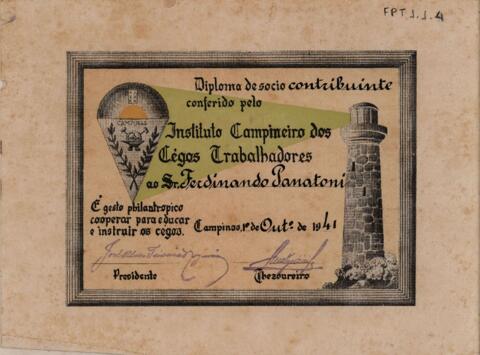 FPT.1.1.4
Diploma de socio contribuinte
conferido pelo
Instituto Campineiro dos
Cégos Trabalhadores
ao Sr. Ferdinando Panatoni
CAMPINAS
É gesto philantropico
cooperar para educar
e instruir os cegos.
Campinas, 1º de Outº de 1941
Presidente
Thezoureiro